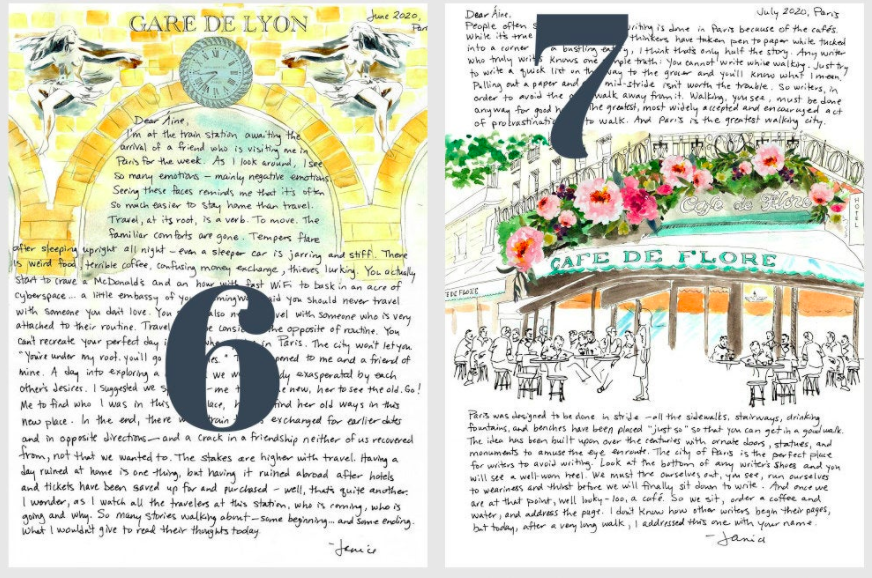 GARE DE LYON
June 2020,
Par
Dear Áine,
I'm at the train station awaiting the
arrival of a friend who is visiting me in
Paris for the week. As I look around, I see
so many emotions - mainly negative emotions
Seeing these faces reminds me that it's often
so much easier to stay home than travel.
Travel, at its root, is a verb. To move. The
familiar comforts are gone. Tempers flare
after sleeping upright all night - even a sleeper car is jarring and stiff. There
is weird food, terrible coffee, confusing money exchange, thieves lurking. You actually
start to crave a McDonald's and an hour with fast WiFi to bask in an acre of
cyberspace... a little embassy of you said you should never travel
with someone you don't love. You also vel with someone who is very
attached to their routine. Travel be consi the opposite of routine. You
can't create your perfect day i in Paris. The city won't let you
"You're under my roof. you'll go ened to me and a friend of
mine. A day into exploring a we we dy exasperated by each
other's desires. I suggested we s - me t new, her to see the old. Go!
Me to find who I was in this lace, find her old ways in this
new place. In the end, there w train exchanged for earlier dates
and in opposite directions - and a crack in a friendship neither of us recovered
from, not that we wanted to. The stakes are higher with travel. Having a
day ruined at home is one thing, but having it ruined abroad after hotels
and tickets have been saved up for and purchased - well, that's quite another.
I wonder, as I watch all the travelers at this station, who is coming, who is
going and why. So many stories walking about - some beginning... and some ending.
What I wouldn't give to read their thoughts today.
- Janice
6
July 2020, Paris
Dear Áine,
People often s writing is done in Paris because of the cafés.
While it's true thinkers have taken pen to paper while tucked
into a corner a bustling ea y, I think that's only half the story. Any writer
who truly writes knows one mple truth: You cannot write while walking. Just try
to write a quick list on the way to the grocer and you'll know what I mean.
Pulling out a paper and mid-stride isn't worth the trouble. So writers, in
order to avoid the walk away from it. Walking, you see, must be done
anyway for good h The greatest, most widely accepted and encouraged act
of procrastination to walk. And Paris is the greatest walking city.
7
Café de Flore
HOTEL
CAFE DE FLORE
E DE FLORE
Paris was designed to be done in stride - all the sidewalks, stairways, drinking
fountains, and benches have been placed "just so" so that you can get in a good walk.
The idea has been built upon over the centuries with ornate doors, statues, and
monuments to amuse the eye enroute. The city of Paris is the perfect place
for writers to avoid writing. Look at the bottom of any writer's shoes and you
will see a well-worn heel. We must tire ourselves out, you see, run ourselves
to weariness and thirst before we will finally sit down to write. And once we
are at that point, well looky-loo, a café. So we sit, order a coffee and
water, and address the page. I don't know how other writers begin their pages,
but today, after a very long walk, I addressed this one with your name.
- Janice